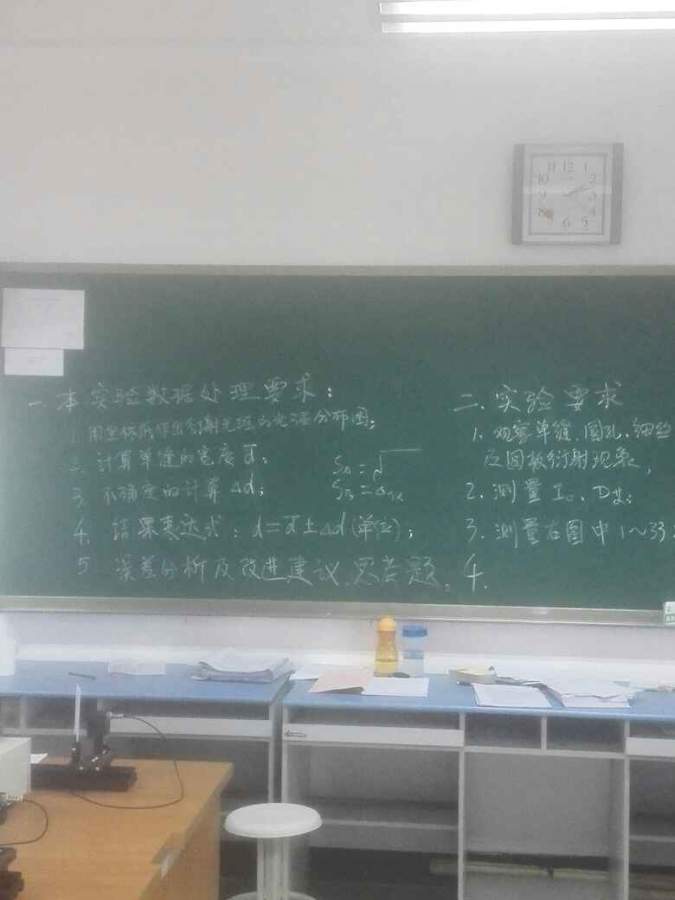 一.本实验数据处理要求:
1.用坐标纸作出衍射光斑的光强分布图;
2.计算单缝的宽度d̅;
3.不确定的计算Δd;
4.结果表达式:d=d̅±Δd(单位);
5.误差分析及改进建议、思考题.
二.实验要求
1.观察单缝、圆孔、细丝
及圆板衍射现象;
2.测量I₀、D
3.测量右图中1~33
4.
12
1
2
3
4
5
6
8
10
11